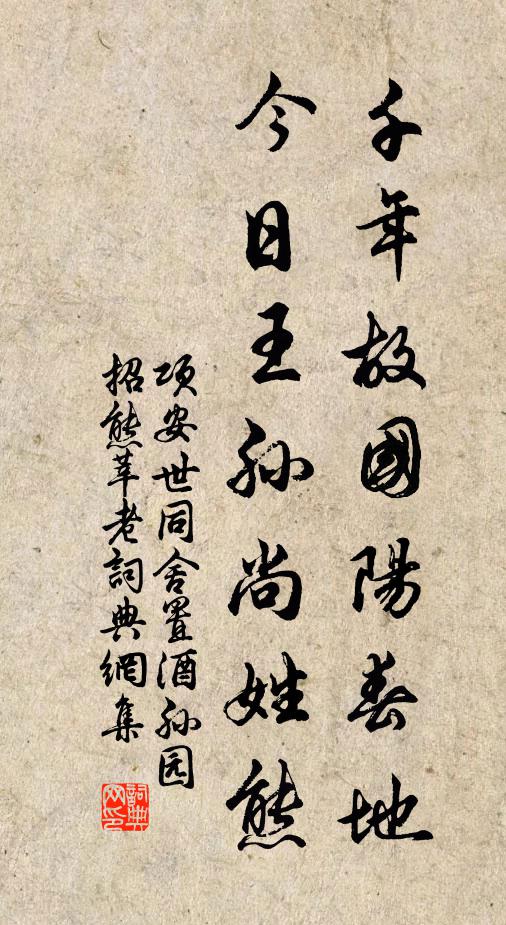 千年故國陽春地
今日王孫尚姓熊
項安世同舍置酒孫园
招熊莘老詞典網集
詞典
网印